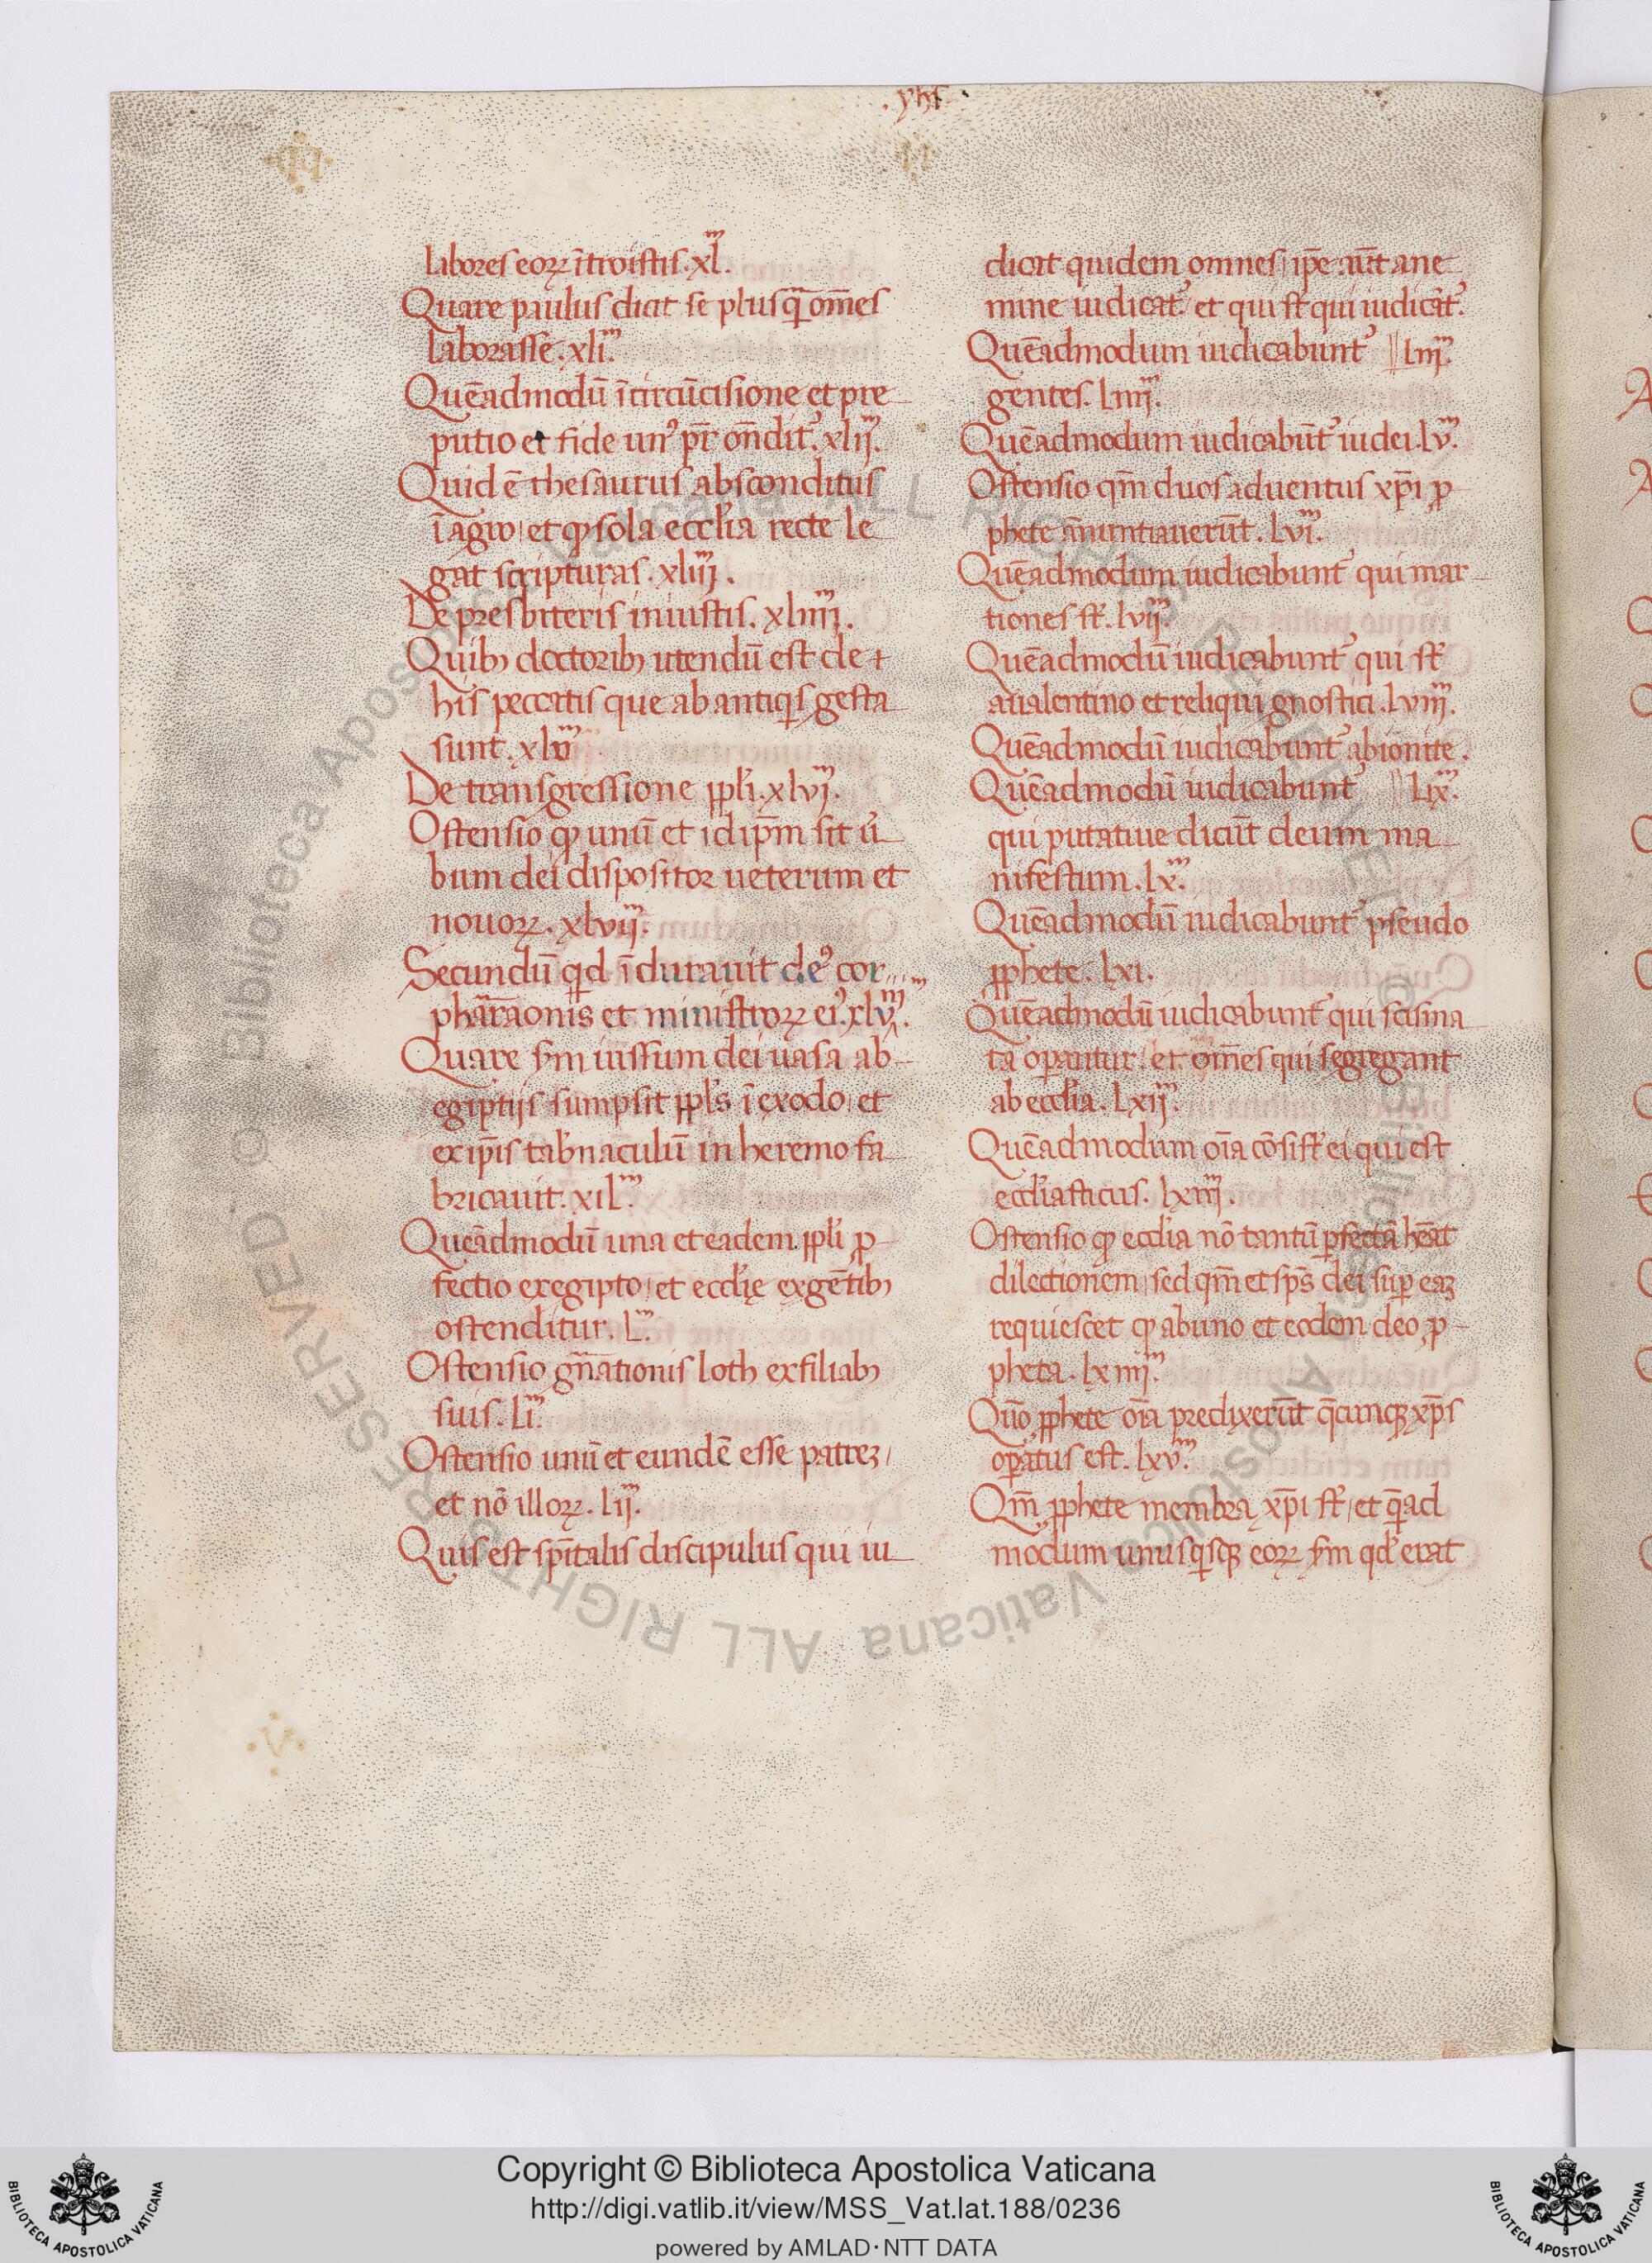 .yhs.
labores eoꝝ ĩtroistis. xl.ᵐ
Quare paulus dicit se plusꝙ̃ om̃es
laborasse. xli.ᵐ
Quẽadmodũ ĩ circũcisione et pre
putio et fide unꝰ pr̃ on̄dit᷑. xlij.ᵐ
Quid ẽ thesaurus absconditus
ĩ agro / et ꝙ sola eccl̓ia recte le
gat scripturas. xliij.ᵐ
De presbiteris iniustis. xliiij.ᵐ
Quibꝫ doctoribꝫ utendũ est de ⁊
his peccatis que ab antiqͥs gesta
sunt. xlv.ᵐ
De transgressione ppl̓i. xlvj.ᵐ
Ostensio ꝙ unũ et idip̃m sit ũ
bum dei dispositor ueterum et
nouoꝝ. xlvij.ᵐ
Secundũ qd ĩdurauit deꝰ cor
pharaonis et ministroꝝ eiꝰ. xlv
Quare sm̃ iussum dei uasa ab
egiptijs sumpsit ppl̓s ĩ exodo / et
ex ip̃is tab̓naculũ in heremo fa
bricauit. xiL.ᵐ
Quẽadmodũ una et eadem ppl̓i ꝓ
fectio ex egipto / et eccl̓ię ex gẽtibꝫ
ostenditur. L.ᵐ
Ostensio gñationis loth ex filiabꝫ
suis. Li.ᵐ
Ostensio unũ et eundẽ esse patreꝫ /
et nõ illoꝝ. lij.ᵐ
Quis est sp̃italis discipulus qui iu
dicat quidem omnes / ip̃e aũt a ne
mine iudicat᷑. et qui st̓ qui iudicãt᷑.
Quẽadmodum iudicabunt᷑ // liij.ᵐ
gentes. liiij.ᵐ
Quẽadmodum iudicabũt᷑ iudei. lv.ᵐ
Ostensio qm̃ duos aduentus xp̃i ꝓ
phete ãnuntiauerũt. lvi.ᵐ
Quẽadmodum iudicabunt᷑ qui mar
tiones st̓. lvij.ᵐ
Quẽadmodũ iudicabunt᷑ qui st̓
a ualentino et reliqui gnostici. lviij.ᵐ
Quẽadmodũ iudicabunt᷑ abionite.
Quẽadmodũ iudicabunt᷑ // lix.ᵐ
qui putatiue dicũt deum ma
nifestum. lx.ᵐ
Quẽadmodũ iudicabunt᷑ pseudo
ꝓphete. lxi.
Quẽadmodũ iudicabunt᷑ qui scisma
ta oꝑantur / et om̃es qui segregant
ab eccl̓ia. lxij.ᵐ
Quẽadmodum oĩa cõsist̓ ei qui est
eccl̓iasticus. lxiij.ᵐ
Ostensio ꝙ eccl̓ia nõ tantũ ꝑfectã hẽat
dilectionem / sed qm̃ et sp̃s dei suꝑ eaꝫ
requiescet ꝙ ab uno et eodem deo ꝓ
pheta. lxiiij.ᵐ
Quõ ꝓphete oĩa predixerũt q̃cunqꝫ xp̃s
oꝑatus est. lxv.ᵐ
Qm̃ ꝓphete membra xp̃i st̓ / et q̃ad
modum unusqͥsqꝫ eoꝝ sm̃ qd̓ erat
Copyright © Biblioteca Apostolica Vaticana
http://digi.vatlib.it/view/MSS_Vat.lat.188/0236
powered by AMLAD·NTT DATA